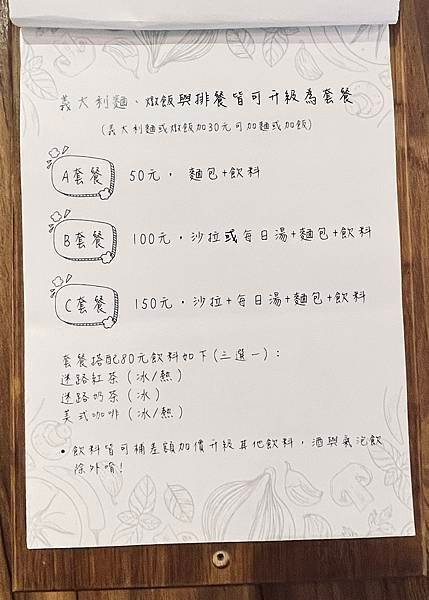 義大利麵、燉飯與排餐皆可升級為套餐
(義大利麵或燉飯加30元可加麵或加飯)
A套餐 50元，麵包+飲料
B套餐 100元，沙拉或每日湯+麵包+飲料
C套餐 150元，沙拉+每日湯+麵包+飲料
套餐搭配80元飲料如下(三選一)：
迷路紅茶(冰/熱)
迷路奶茶(冰)
美式咖啡(冰/熱)
•飲料皆可補差額加價升級其他飲料，酒與氣泡飲
除外喻!